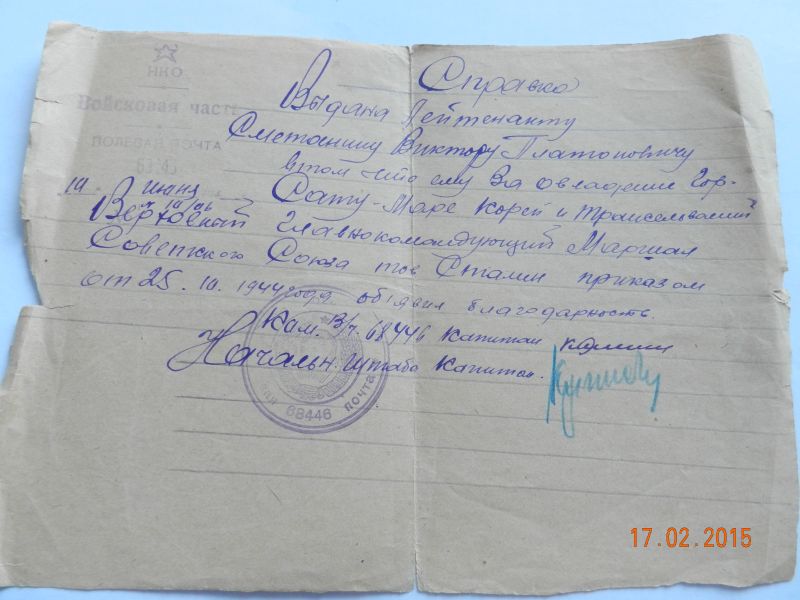 НКО
Войсковая часть
ПОЛЕВАЯ ПОЧТА
10 июня
Справка
Выдана Лейтенанту
Сметанину Виктору Платоновичу
втом что ему За овладение Гор.
Сату-Маре Корей и Трансельванией
Верховный Главнокомандующий Маршал
Советского Союза тов Сталин приказом
от 25.10.1944года объявил благодарность.
Ком. В/ч 68446 Капитан
Начальн. штаба Капитан.
68446 ПОЧТА
17.02.2015